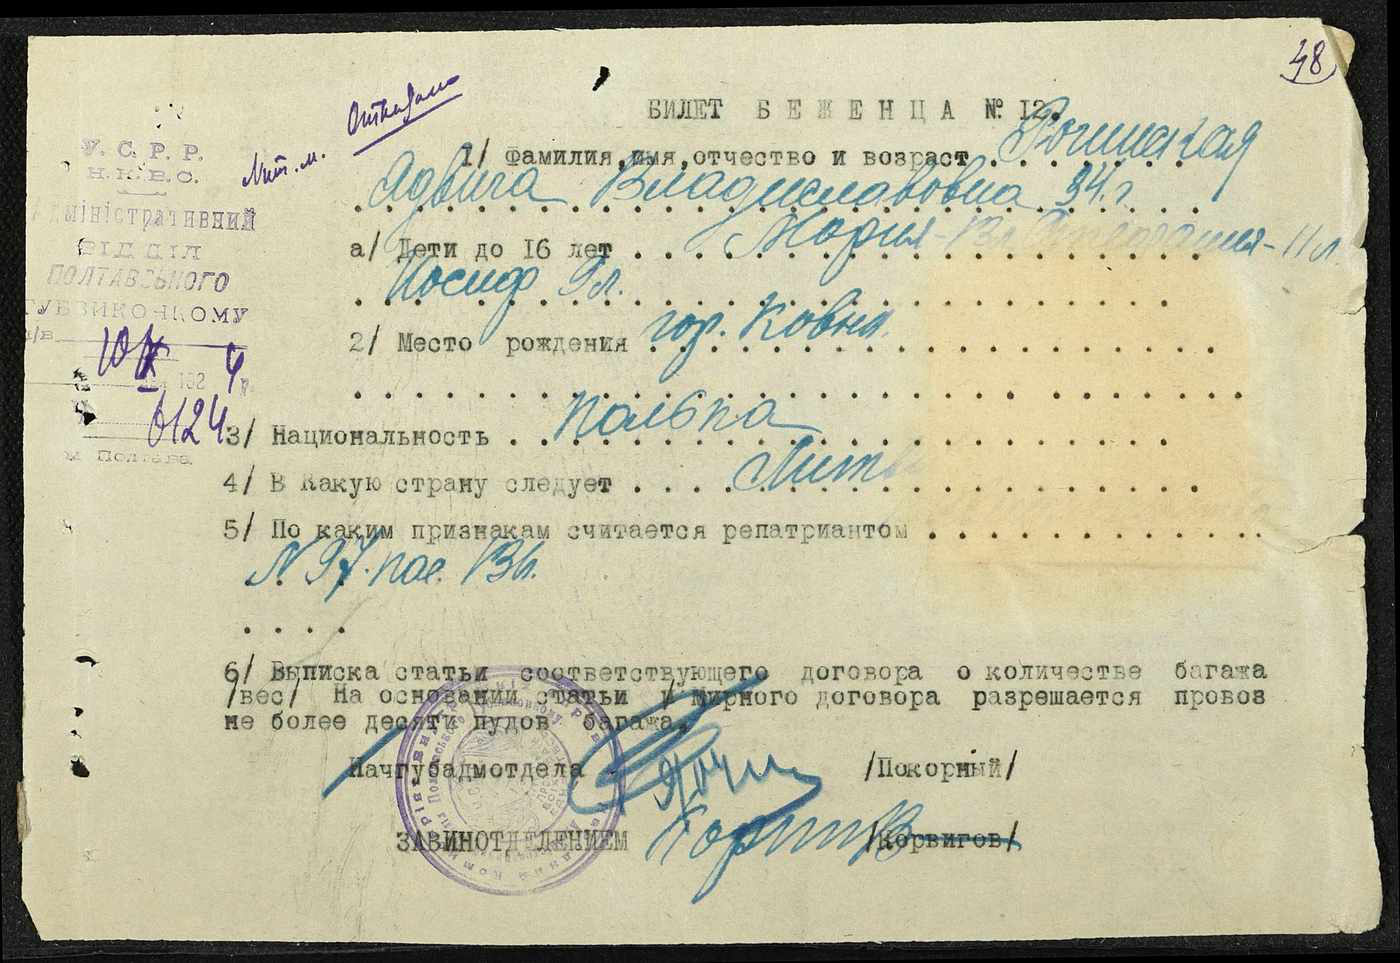 48
Отказано
Лит. м.
БИЛЕТ БЕЖЕНЦА № 12.
У. С. Р. Р.
Н. К. В. С.
Адміністративний
ВІДДІЛ
ПОЛТАВСЬКОГО
ГУБВИКОНКОМУ
10/X 1924 р.
6124
м. Полтава
1/ Фамилия, имя, отчество и возраст . . . . . .
Ядвига Владиславовна 34 г.
а/ Дети до 16 лет . . . Мария - 11 л.
Иосиф 9 л.
2/ Место рождения гор. Ковна
3/ Национальность . . . полька
4/ В какую страну следует . . . Литв
5/ По каким признакам считается репатриантом . . . . . . . . . . . .
N 97. пос. Вы.
. . . .
6/ Выписка статьи соответствующего договора о количестве багажа
/вес/ На основании статьи мирного договора разрешается провоз
не более десяти пудов багажа.
Начгубадмотдела /Покорный/
ЗАВИНОТДЕЛЕНИЕМ /Корвигов/